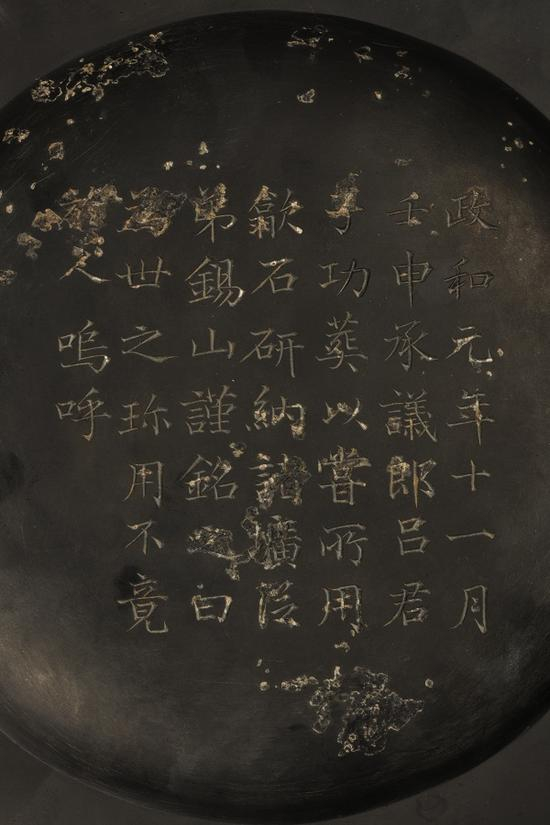 政和元年十一月
壬申承議郎呂君
子功葬以嘗所用
歙石研納諸壙從
弟錫山謹銘 曰
為世之珎用不竟
人嗚呼